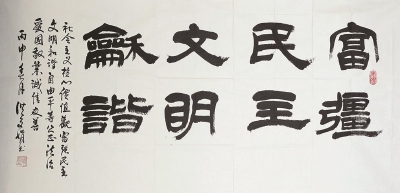 富彊
民主
文明
龢諧
社会主义核心價值觀富强民主
文明和谐自由平等公正法治
愛國敬業誠信友善
丙申春月